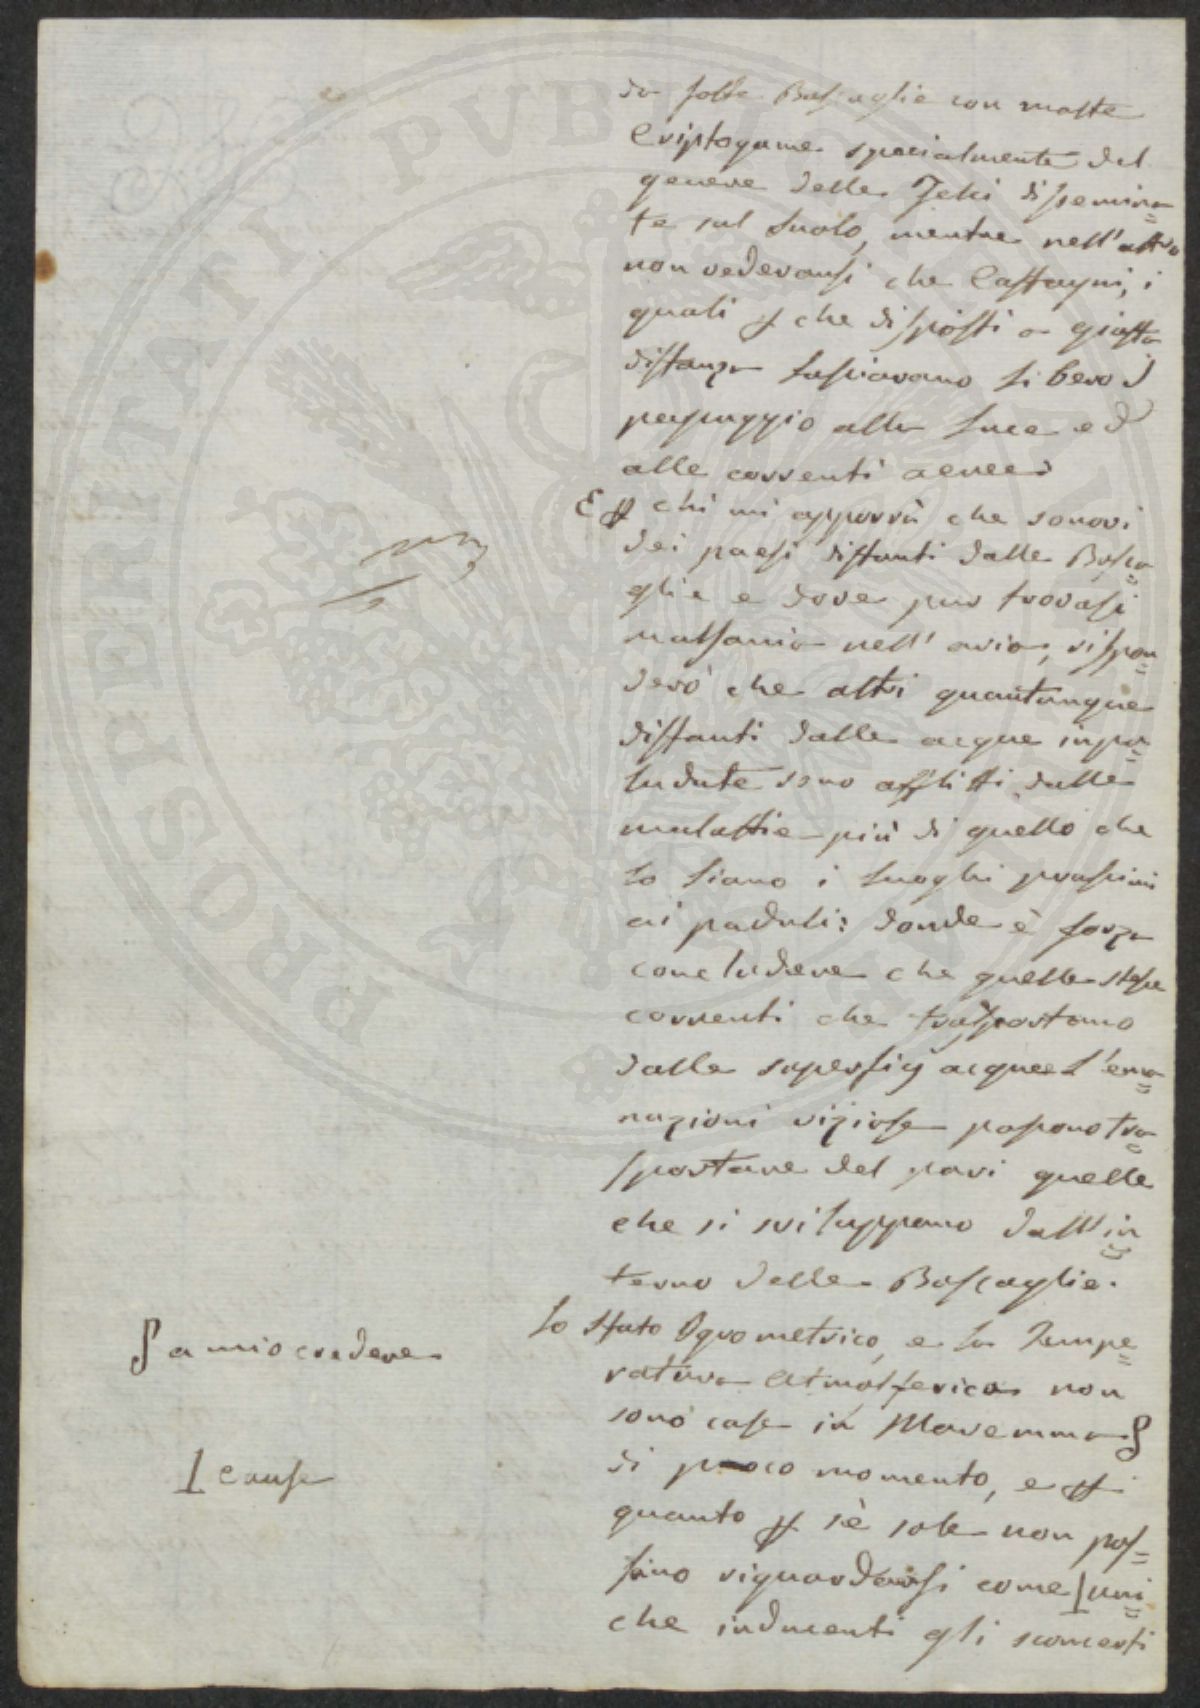 da folte Boscaglie con molte
Criptogame specialmente del
genere delle Felci disemina=
te sul suolo, mentre nell'altro
non vedevansi che Castagni, i
quali p che disposti a giusta
distanza lasciavano libero
passaggio alla luce ed
alle correnti aeree
E p chi mi apporrà che sonovi
dei paesi distanti dalle Bosca=
glie e dove pur trovasi
malsania nell' aria, rispon=
derò che altri quantunque
distanti dalle acque inpa=
ludate sono afflitti dalle
malattie più di quello che
lo siano i luoghi prossimi
ai paduli: donde è forza
concludere che quelle stesse
correnti che trasportano
dalle superficj acquee l'ema=
nazioni viziose possono tra=
sportare del pari quelle
che si sviluppano dall'in=
terno delle Boscaglie.
Lo stato Igrometrico, e la Tempe=
ratura Atmosferica non
sono cose in Maremma
a mio credere
di poco momento, e p
quanto p sè sole non pos=
sino riguardarsi come uni=
cause
che inducenti gli sconcerti
PROSPERITATI PVBLICAE